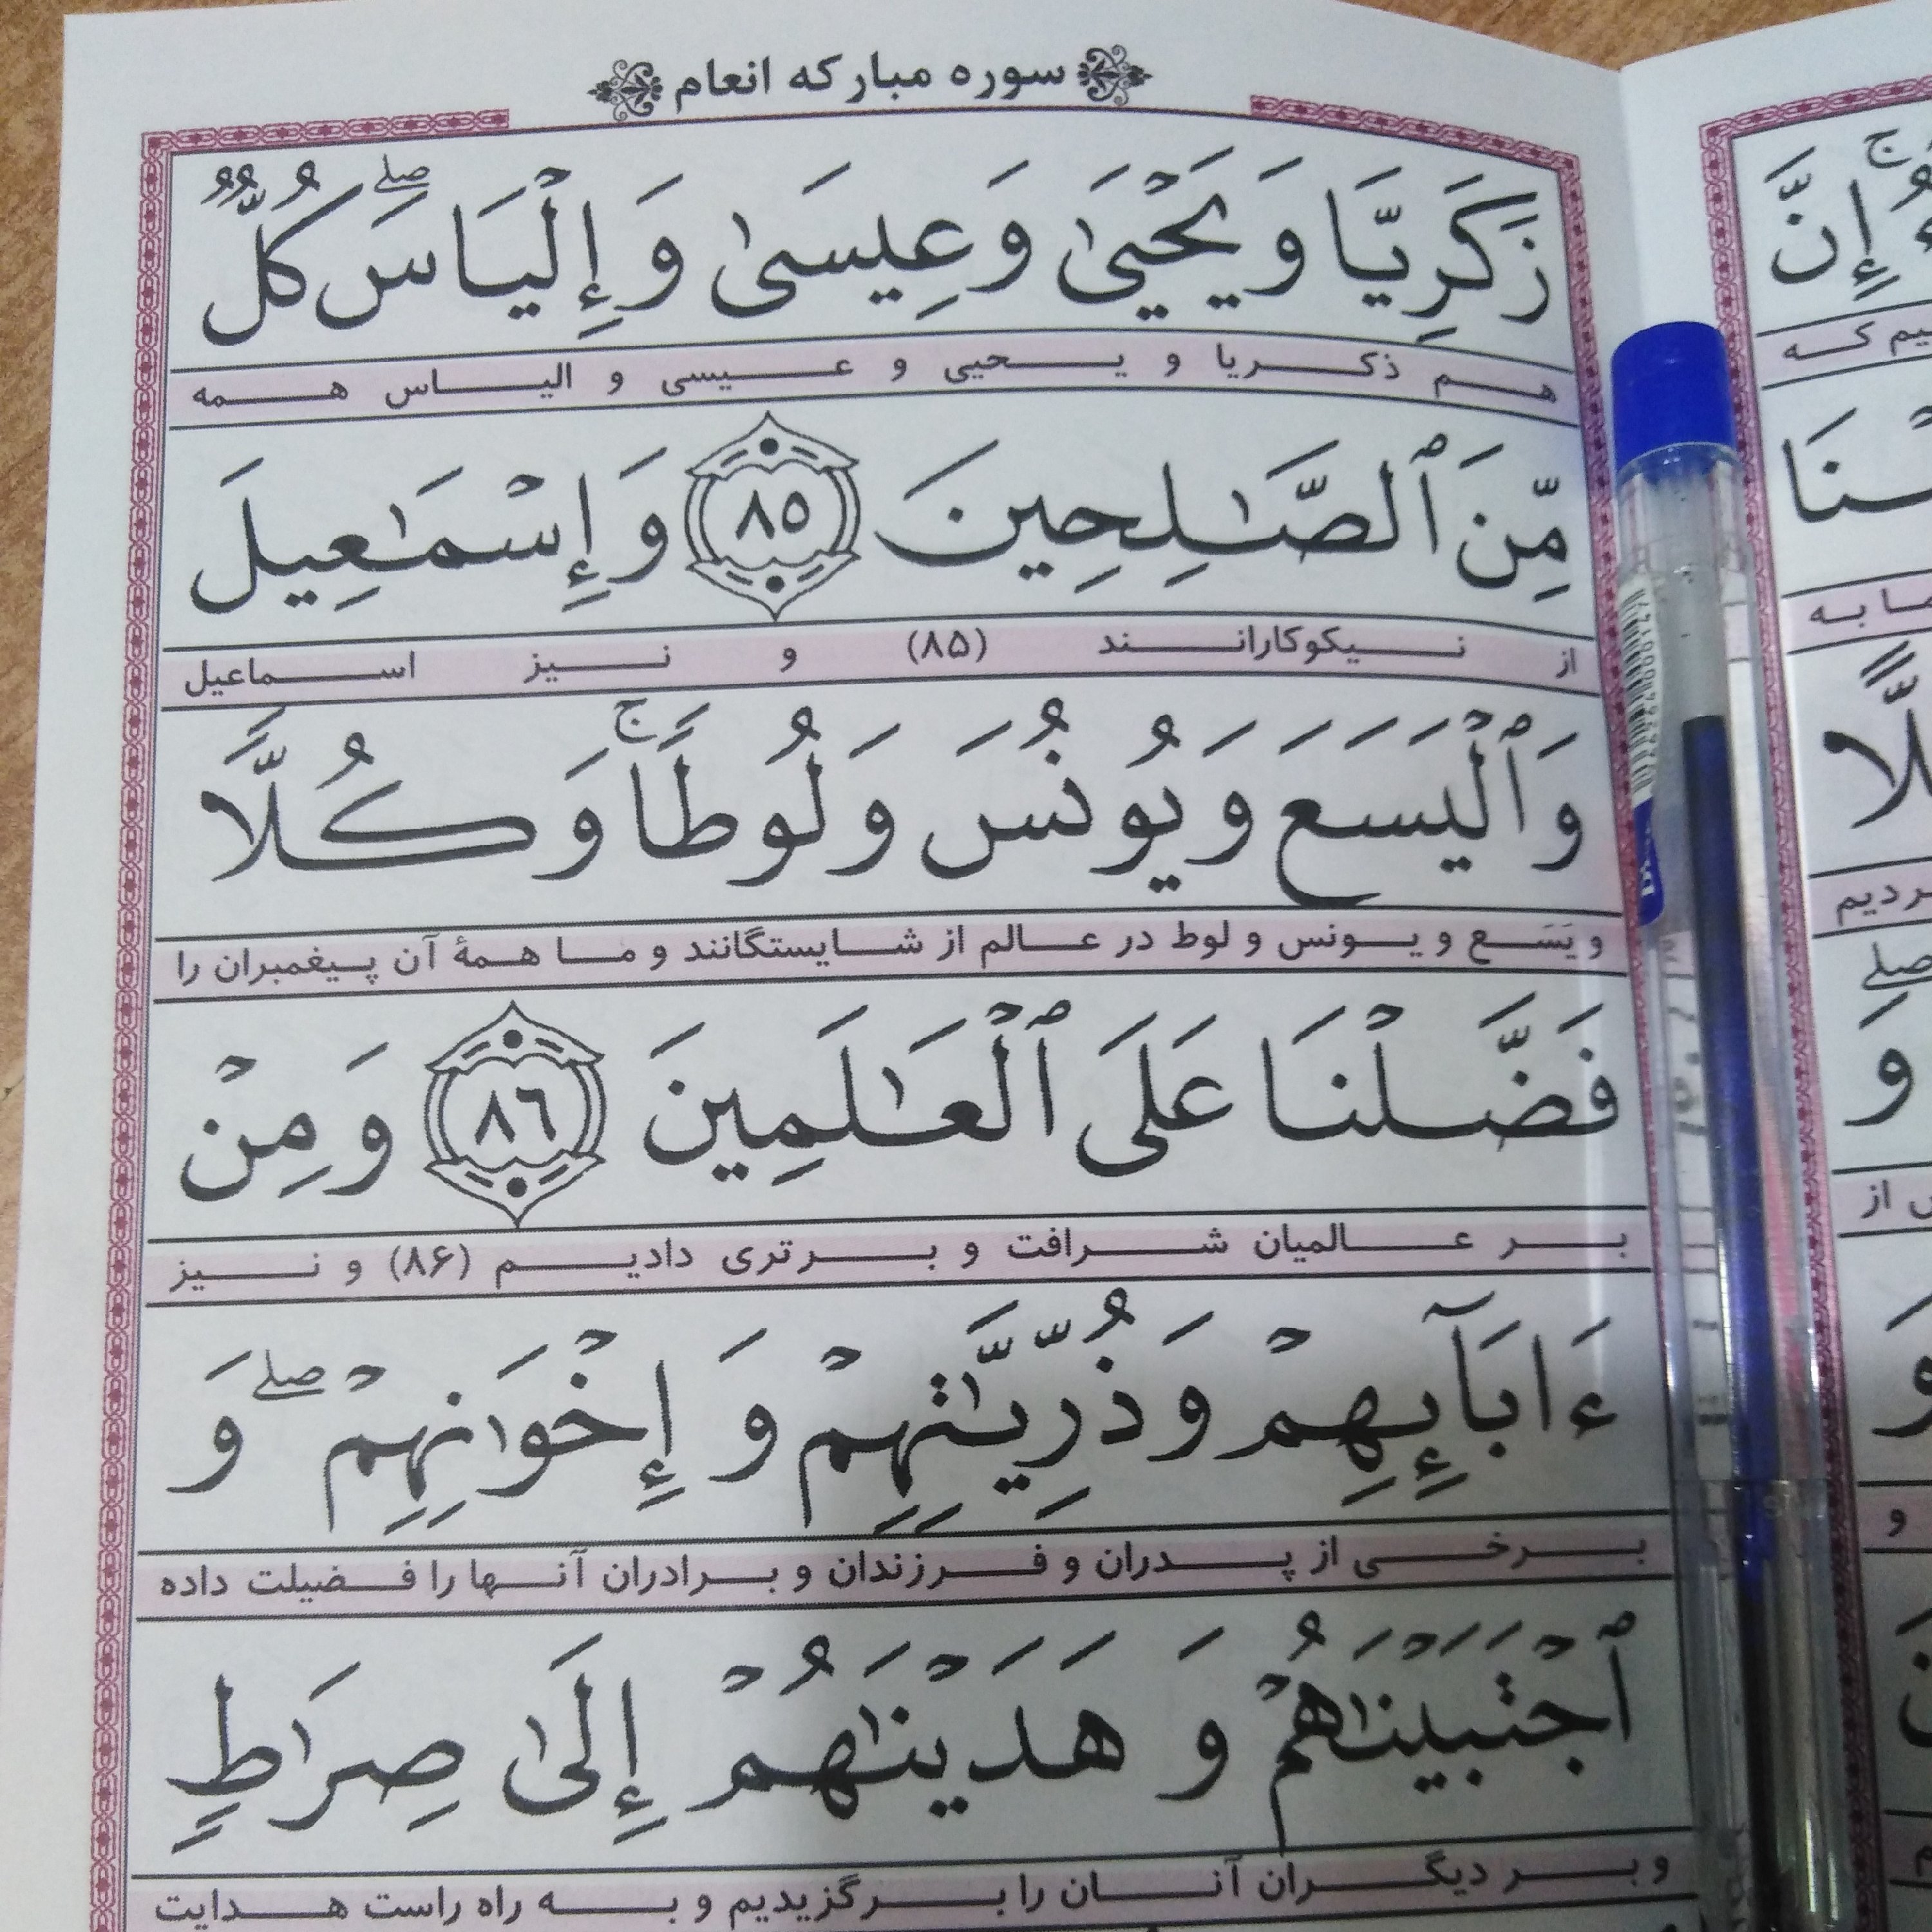 سوره مبارکه انعام
زَكَرِيَّا وَ يَحۡيَىٰ وَعِيسَىٰ وَ إِلۡيَاسَۖ كُلّٞ
هم ذکریا و یحیی و عیسی و الیاس همه
مِّنَ ٱلصَّـٰلِحِينَ ٨٥ وَ إِسۡمَـٰعِيلَ
از نیکوکارانند (۸۵) و نیز اسماعیل
وَٱلۡيَسَعَ وَ يُونُسَ وَلُوطٗاۚ وَ كُلّٗا
و یَسَع و یونس و لوط در عالم از شایستگانند و ما همهٔ آن پیغمبران را
فَضَّلۡنَا عَلَى ٱلۡعَـٰلَمِينَ ٨٦ وَ مِنۡ
بر عالمیان شرافت و برتری دادیم (۸۶) و نیز
ءَابَآئِهِمۡ وَ ذُرِّيَّـٰتِهِمۡ وَ إِخۡوَٰنِهِمۡۖ وَ
برخی از پدران و فرزندان و برادران آنها را فضیلت داده
ٱجۡتَبَيۡنَـٰهُمۡ وَ هَدَيۡنَـٰهُمۡ إِلَىٰ صِرَٰطٖ
و بر دیگران آنان را برگزیدیم و به راه راست هدایت
إِنَّ
یم که
ما به
ردیم
از
و